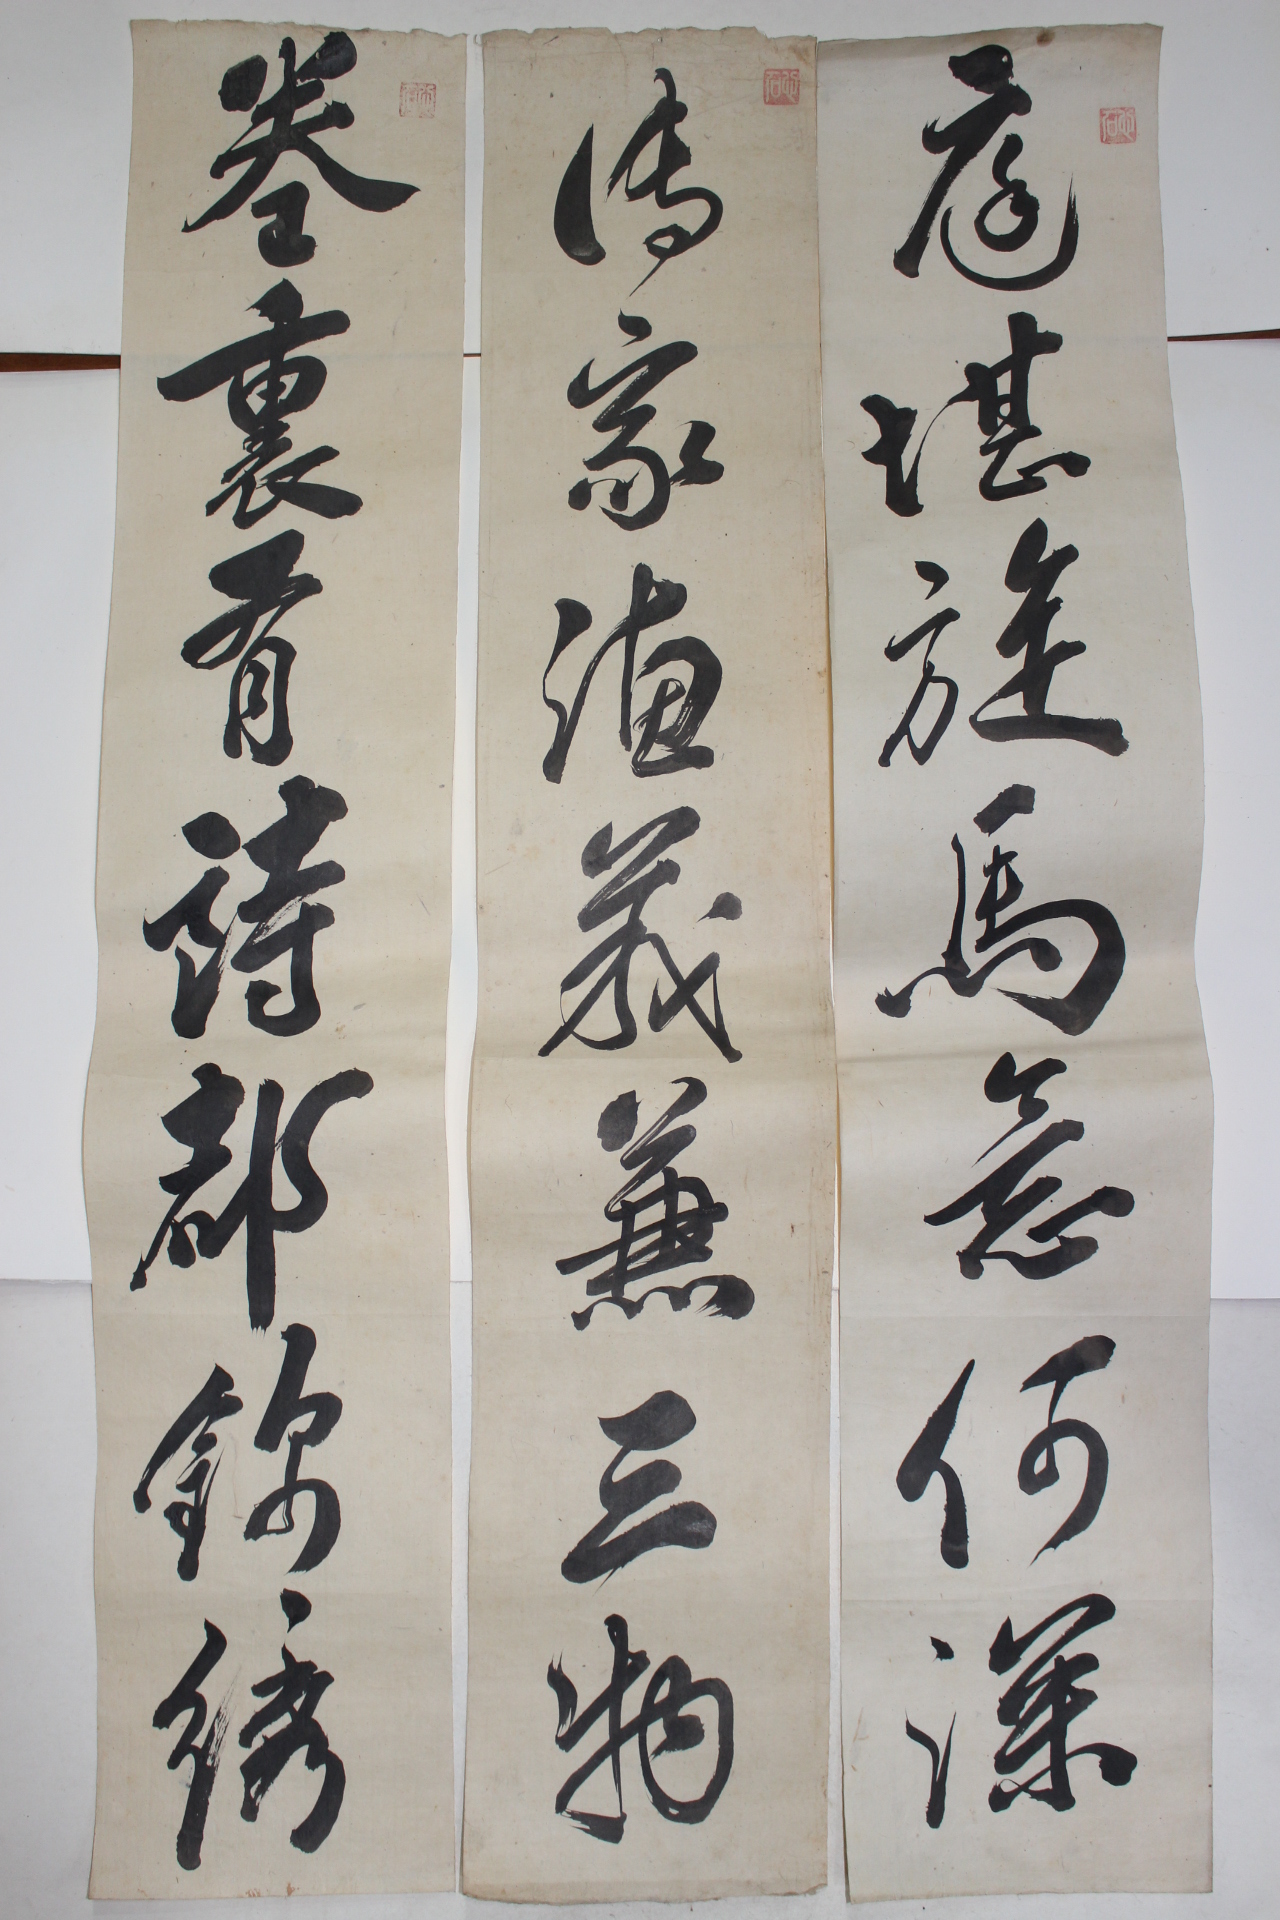 庭堪旋馬意何深
傳家德義兼三物
卷裏有詩都錦綉